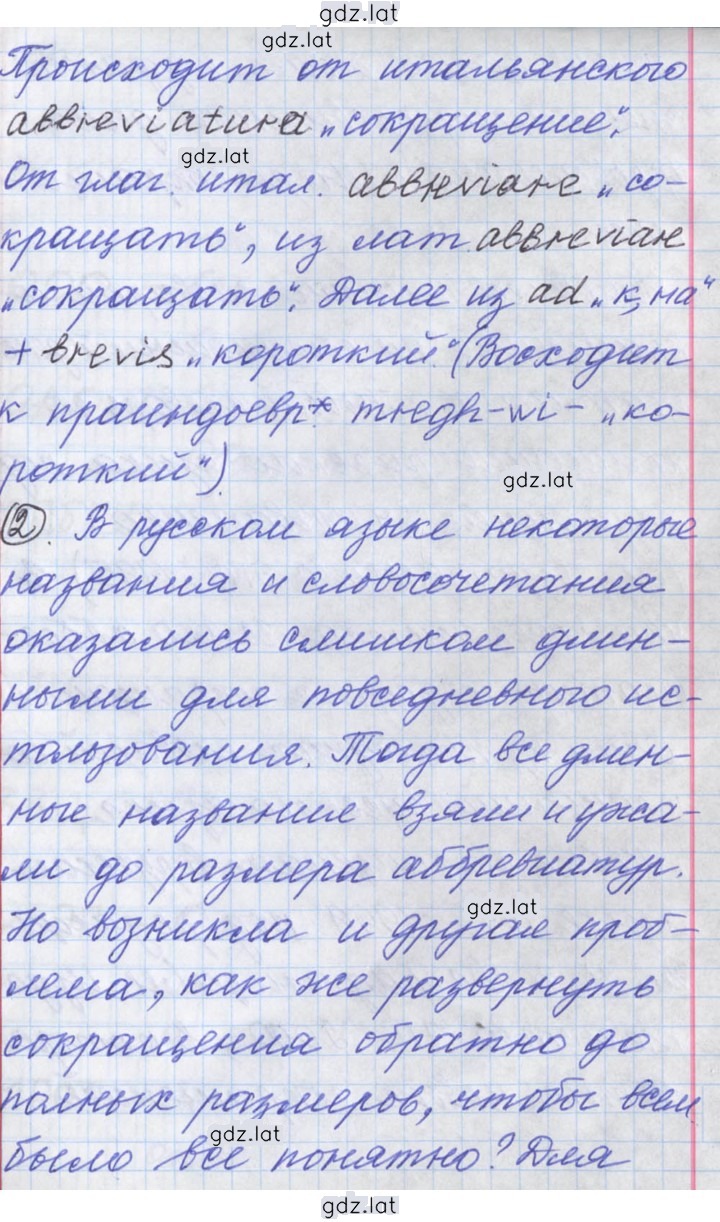 gdz.lat
gdz.lat
Происходит от итальянского
abbreviatura „сокращение“.
gdz.lat
От глаг. итал. abbreviare „со-
кращать“, из лат. abbreviare
„сокращать“. Далее из ad „к, на“
+ brevis „короткий“ (Восходит
к праиндоевр.* mregh-wi- „ко-
роткий“).
gdz.lat
2. В русском языке некоторые
названия и словосочетания
оказались слишком длин-
ными для повседневного ис-
пользования. Тогда все длин-
ные название взяли и ужа-
ли до размера аббревиатур.
gdz.lat
Но возникла и другая проб-
лема, как же развернуть
сокращения обратно до
полных размеров, чтобы всем
gdz.lat
было все понятно? Для
gdz.lat